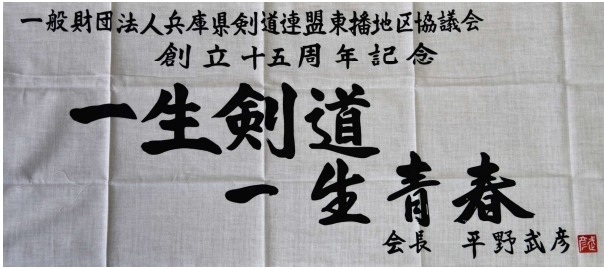 一般財団法人兵庫県剣道連盟東播地区協議会
創立十五周年記念
一生剣道
一生青春
会長 平野武彦